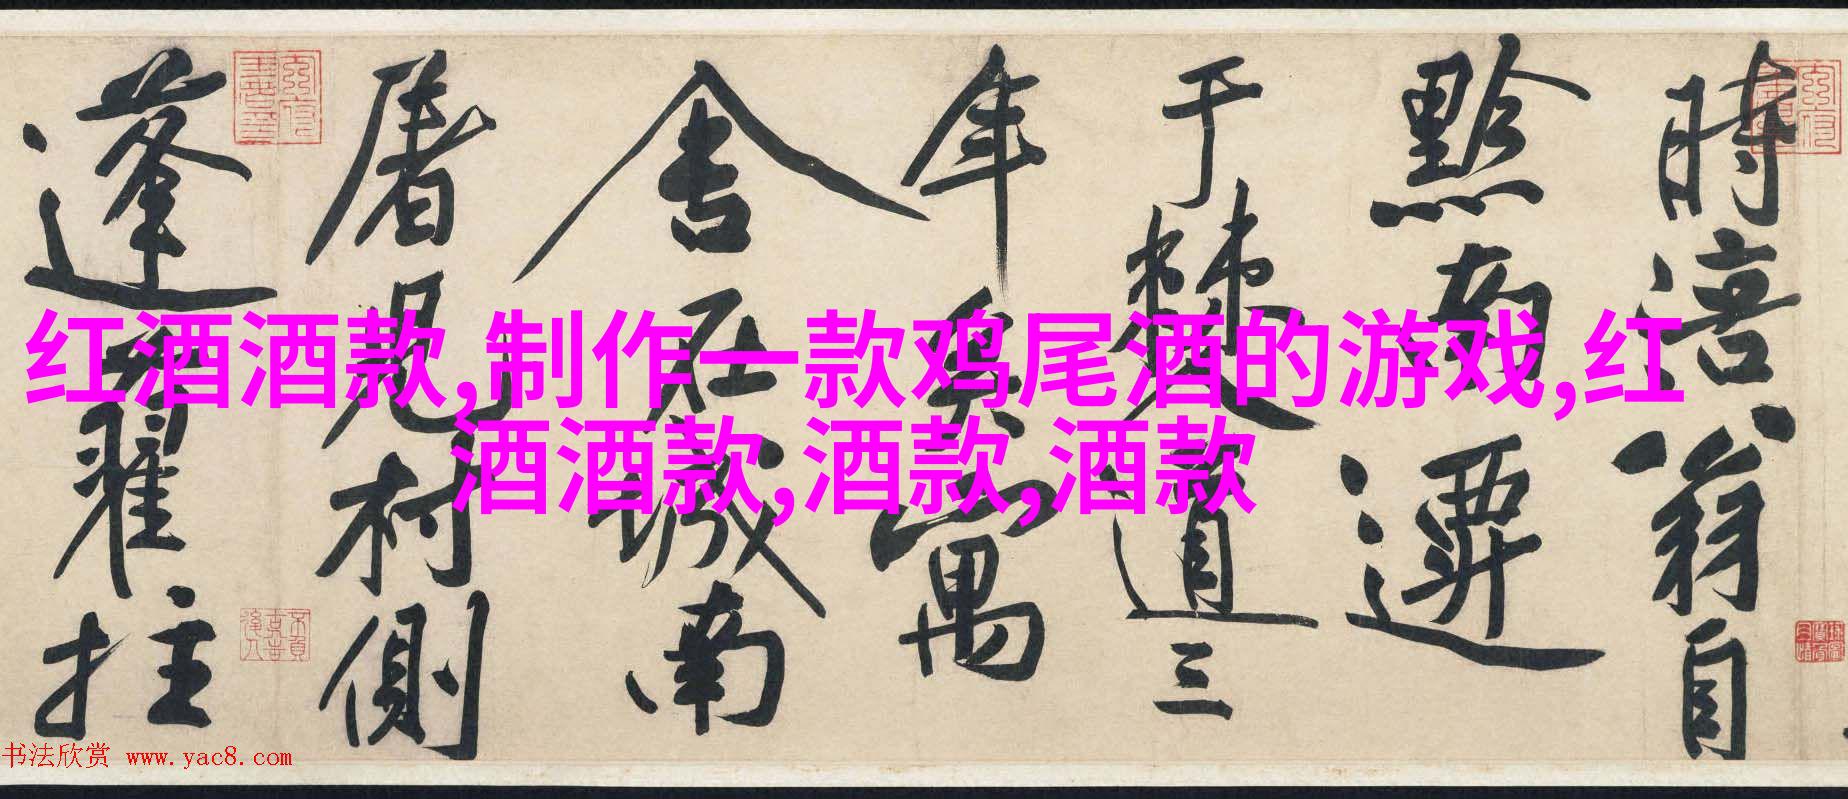 红酒酒款,制作一款鸡尾酒的游戏,红
酒酒款,酒款,酒款
時涪翁自
黔南遷
于僰道三
年矣寓
舍在城南
屠兒村側
蓬藋拄
书法欣赏 www.yac8.com